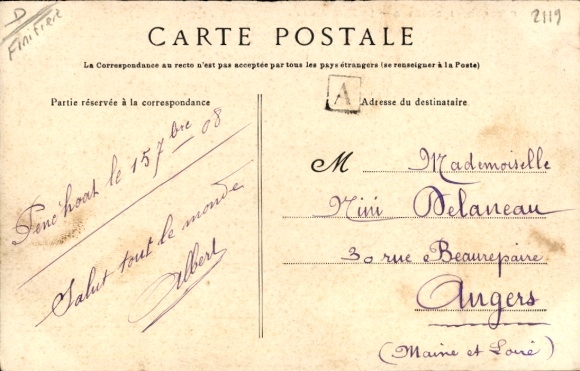 D
Finistère
2119
CARTE POSTALE
La Correspondance au recto n'est pas acceptée par tous les pays étrangers (se renseigner à la Poste)
Partie réservée à la correspondance
A
Adresse du destinataire
Penc'hoat le 15 7bre 08
Salut tout le monde
Albert
M Mademoiselle
Nini Delaneau
30 rue Beaurepaire
Angers
(Maine et Loire)